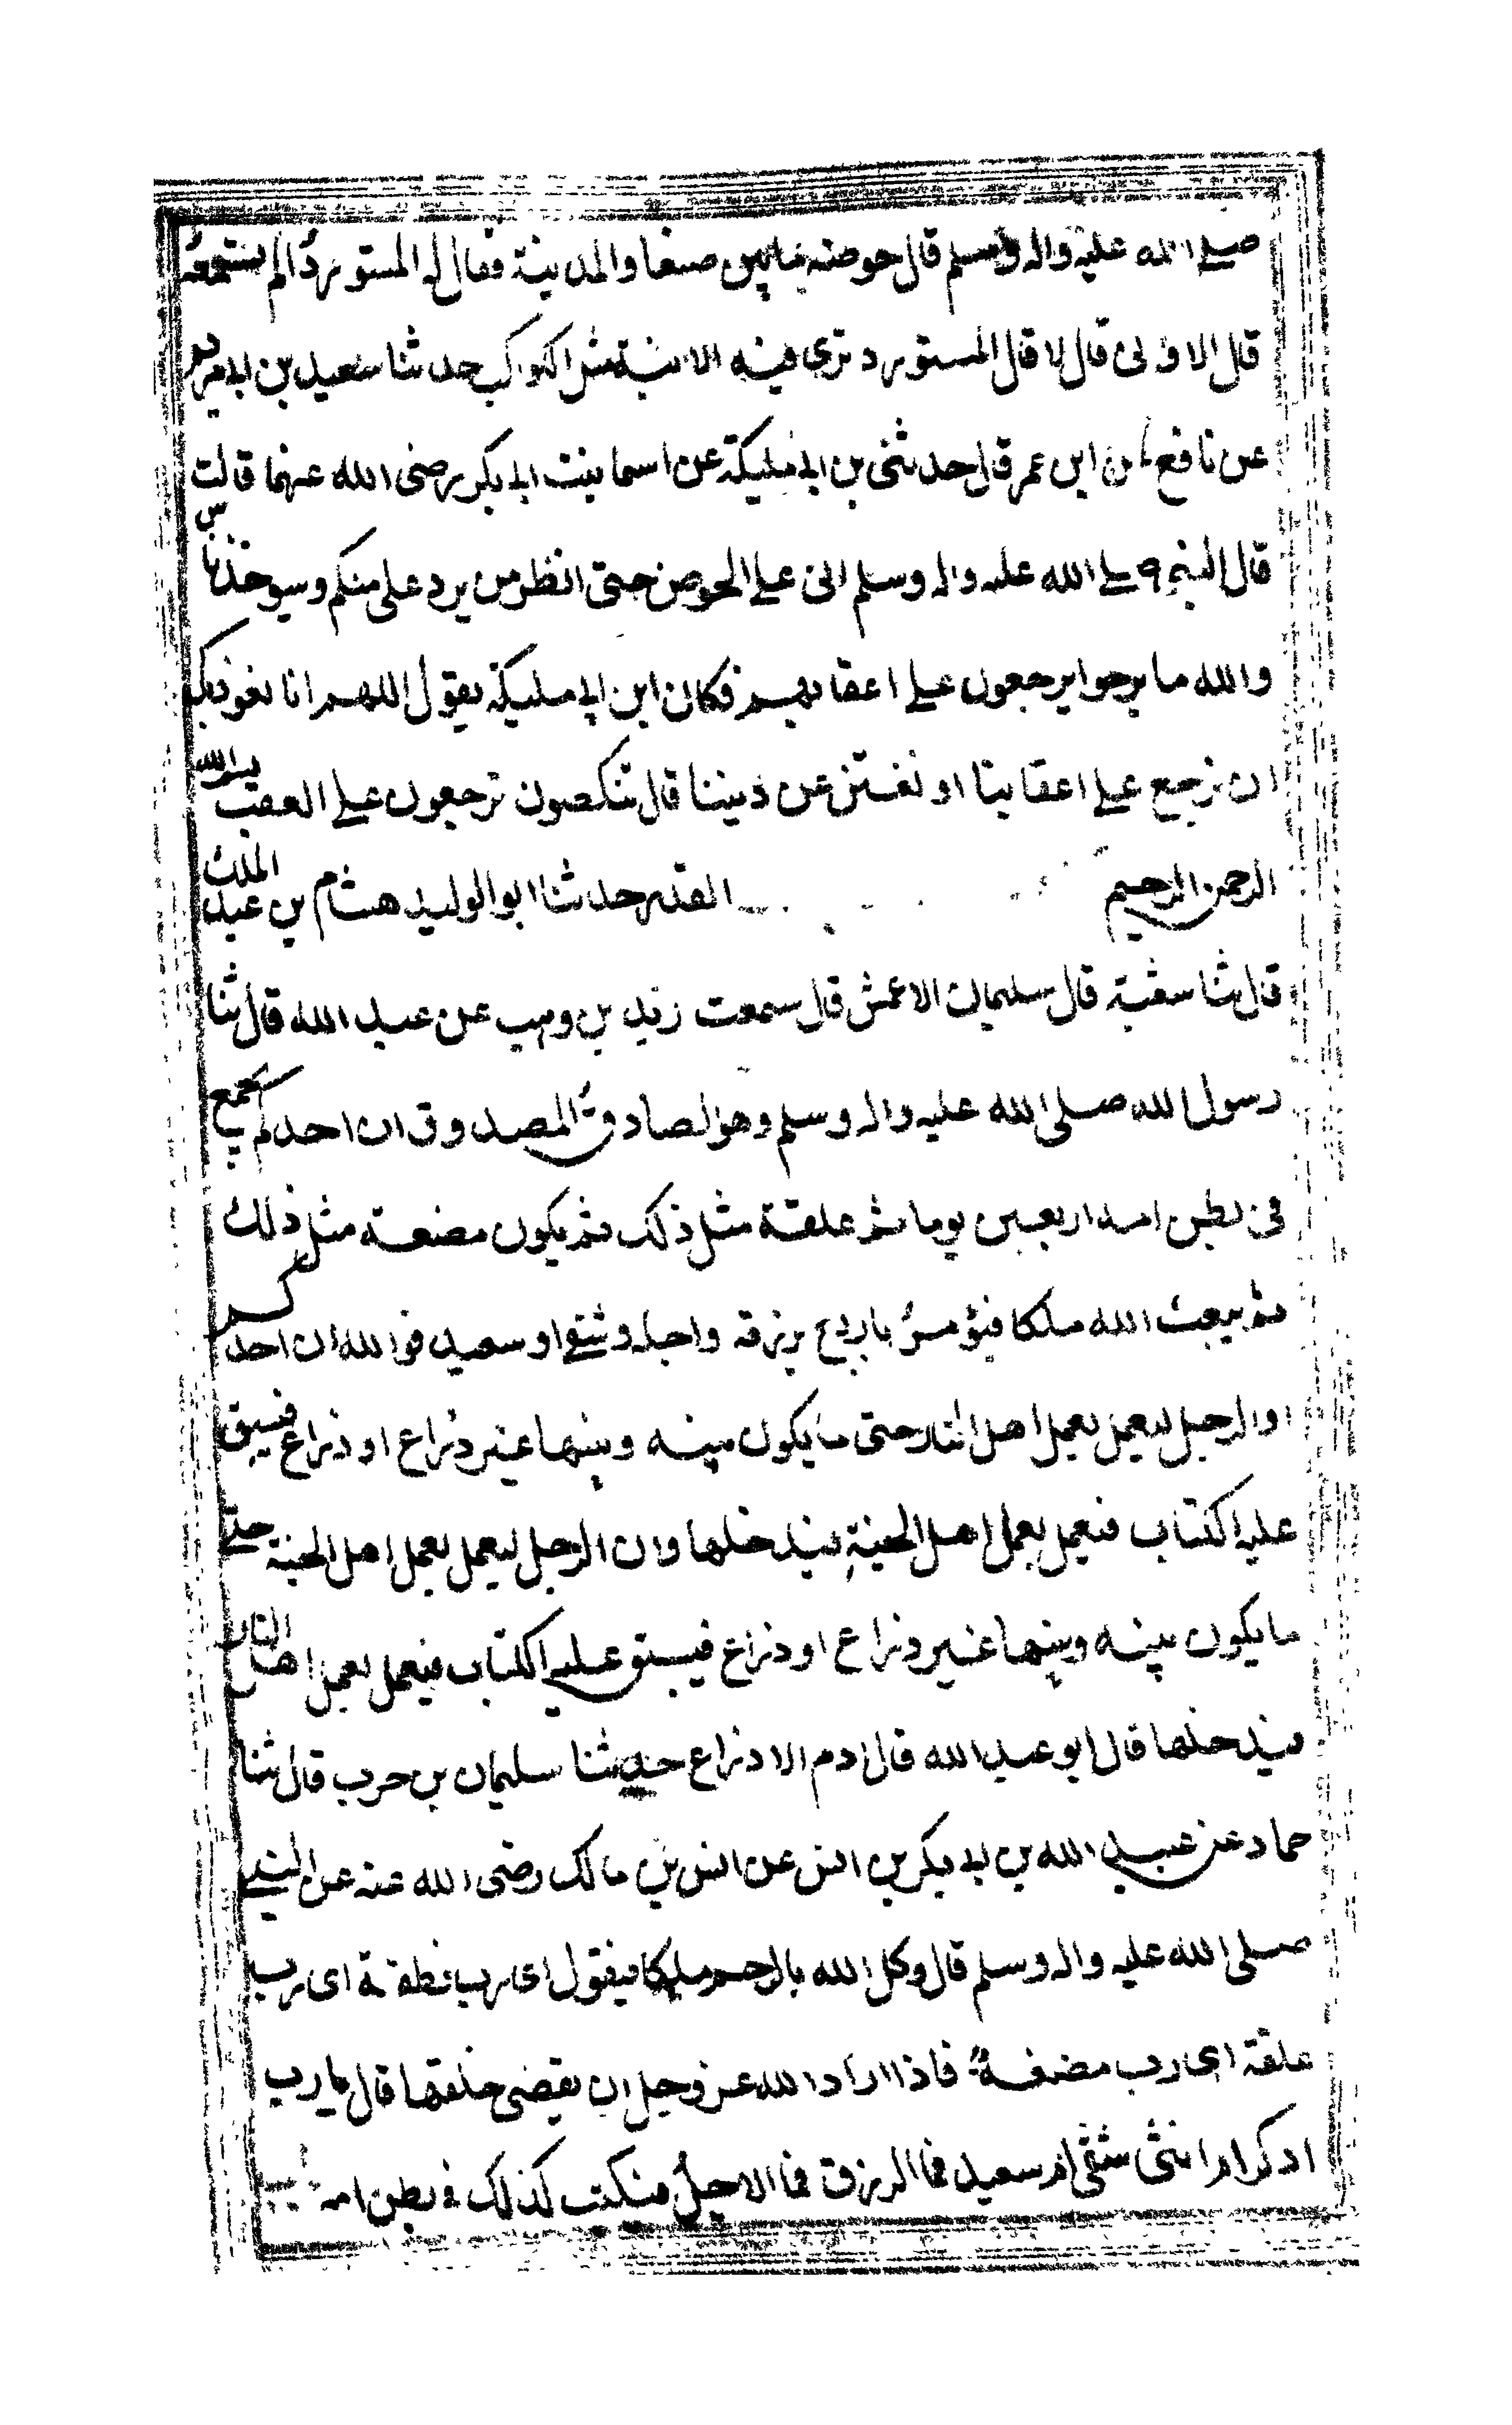 صلى الله عليه واله وسلم قال حوضه مابين صنعا والمدينة فقال له المستورد الم تستمعه
قال الاوانى قال لا قال المستورد ترى فيه الانية مثل الكواكب حدثنا سعيد بن ابى مريم
عن نافع بن ابن عمر قال حدثنى بن ابى مليكة عن اسما بنت ابى بكر رضى الله عنهما قالت
قال النبى صلى الله عليه واله وسلم انى على الحوض حتى انظر من يرد على منكم وسيوخذ ناس
والله ما برحوا يرجعون على اعقابهم فكان ابن ابى مليكة يقول اللهم انا نعوذ بك
ان نرجع على اعقابنا او نفتتن عن ديننا قال تنكصون ترجعون على العقب بسم الله
الرحمن الرحيم القدر حدثنا ابو الوليد هشام بن عبد الملك
قال ثنا شعبة قال سليمان الاعمش قال سمعت زيد بن وهب عن عبد الله قال ثنا
رسول الله صلى الله عليه واله وسلم وهو الصادق المصدوق ان احدكم يجمع
فى بطن امه اربعين يوما ثم علقة مثل ذلك ثم يكون مضغة مثل ذلك
ثم يبعث الله ملكا فيؤمر باربع برزقه واجله وشقى او سعيد فوالله ان احدكم
او الرجل ليعمل بعمل اهل النار حتى ما يكون بينه وبينها غير ذراع او ذراع فيسبق
عليه الكتاب فيعمل بعمل اهل الجنة فيدخلها وان الرجل ليعمل بعمل اهل الجنة حتى
ما يكون بينه وبينها غير ذراع او ذراع فيسبق عليه الكتاب فيعمل بعمل اهل النار
فيدخلها قال ابو عبد الله قال ادم الا ذراع حدثنا سليمان بن حرب قال ثنا
حماد عن عبيد الله بن ابى بكر بن انس عن انس بن مالك رضى الله عنه عن النبى
صلى الله عليه واله وسلم قال وكل الله بالرحم ملكا فيقول اى رب نطفة اى رب
علقة اى رب مضغة فاذا اراد الله عز وجل ان يقضى خلقها قال يا رب
اذكر ام انثى شقى ام سعيد فما الرزق فما الاجل فيكتب كذلك فى بطن امه